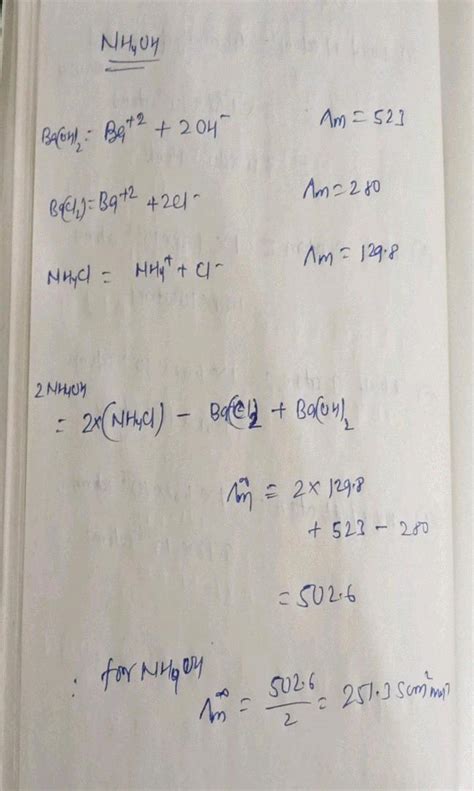 NH₄OH
Ba(OH)₂ = Ba⁺² + 2OH⁻ Λm = 523
BaCl₂) = Ba⁺² + 2Cl⁻ Λm = 280
NH₄Cl = NH₄⁺ + Cl⁻ Λm = 129.8
2NH₄OH
= 2×(NH₄Cl) − Ba(Cl)₂ + Ba(OH)₂
Λm^∞ = 2 × 129.8
+ 523 − 280
= 502.6
∴ for NH₄OH
Λm^∞ = 502.6/2 = 251.3 Scm² mol⁻¹